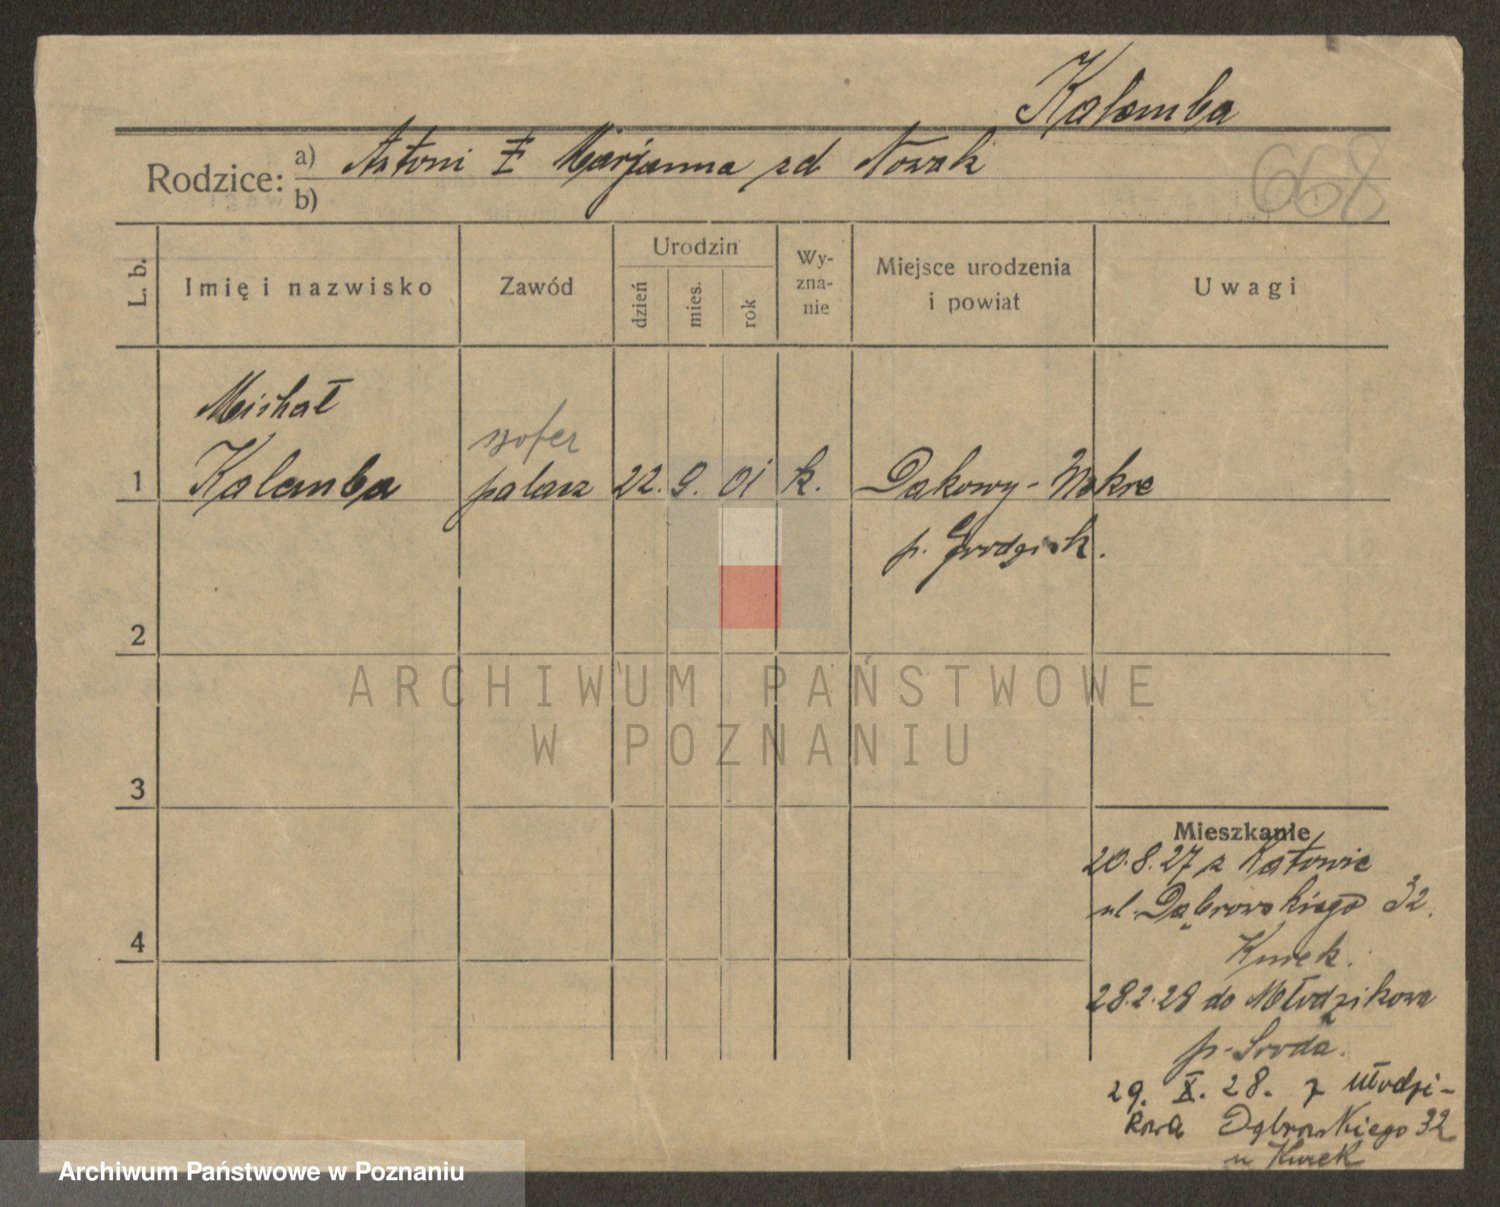 Kalemba
Rodzice: a) Antoni i Marjanna zd Nowak
b)
668
L. b. Imię i nazwisko Zawód Urodzin dzień mies. rok Wy-zna-nie Miejsce urodzenia i powiat Uwagi
Michał
szofer
1 Kalemba palacz 22. 9. 01 k. Dakowy-Mokre
p. Grodzisk.
2
ARCHIWUM PAŃSTWOWE
W POZNANIU
3
Mieszkanie
20.8.27 z Katowic
ul. Dąbrowskiego 32.
4
Kurek.
28.2.28 do Młodzikowa
p. Środa.
29. X. 28. z Młodzi-
kowa Dąbrowskiego 32
u Kurek
Archiwum Państwowe w Poznaniu